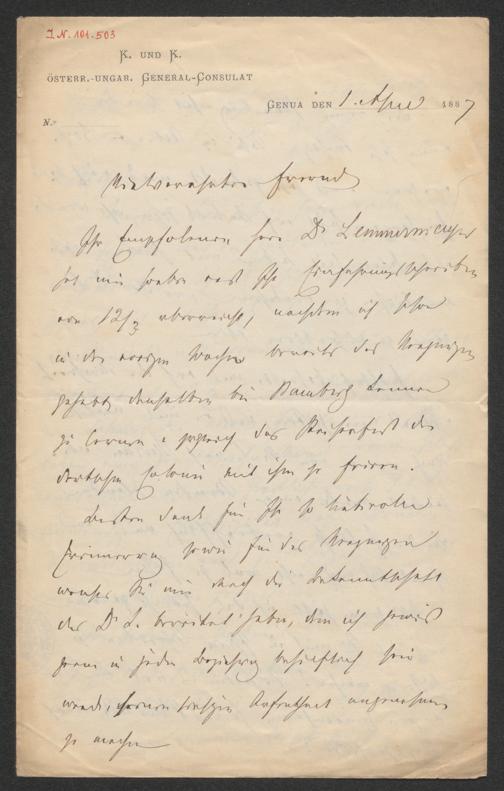 I.N. 101.503
K. UND K.
ÖSTERR.-UNGAR. GENERAL-CONSULAT
GENUA DEN 1. April 1887
N.
Vielverehrter Freund
Ihr Empfohlener Herr Dr. Lemmermayer
hat mir soeben erst Ihr Einführungsschreiben
von 12/3 überreicht, nachdem ich schon
in der vorigen Woche bereits das Vergnügen
gehabt denselben bei Bamberg kennen
zu lernen & zugleich das Kaiserfest der
deutschen Colonie mit ihm zu feiern.
Besten Dank für Ihr so liebevolle
Erinnerung sowie für das Vergnügen
welches Sie mir durch die Bekanntschaft
des Dr. L. bereitet haben, dem ich gewiß
gerne in jeder Beziehung behilflich sein
werde, seinen hiesigen Aufenthalt angenehm
zu machen